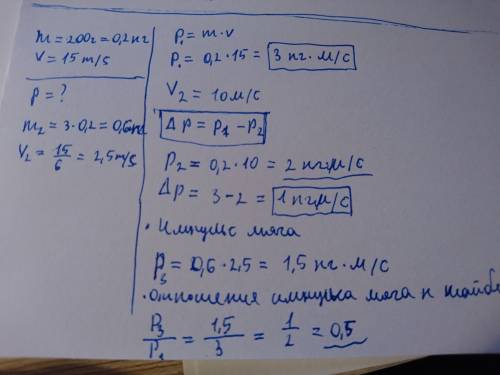 m = 200г = 0,2 кг
V = 15 m/s
p = ?
m₂ = 3·0,2 = 0,6кг
V₂ = 15/6 = 2,5 m/s
P₁ = m · v
P₁ = 0,2 · 15 = 3 кг · м/с
V₂ = 10 м/с
Δp = P₁ - P₂
P₂ = 0,2 · 10 = 2 кг·м/с
Δp = 3 - 2 = 1 кг·м/с
· Импульс мяча
P₃ = 0,6 · 2,5 = 1,5 кг · м/с
· отношения импульса мяча к
P₃/P₁ = 1,5/3 = 1/2 = 0,5